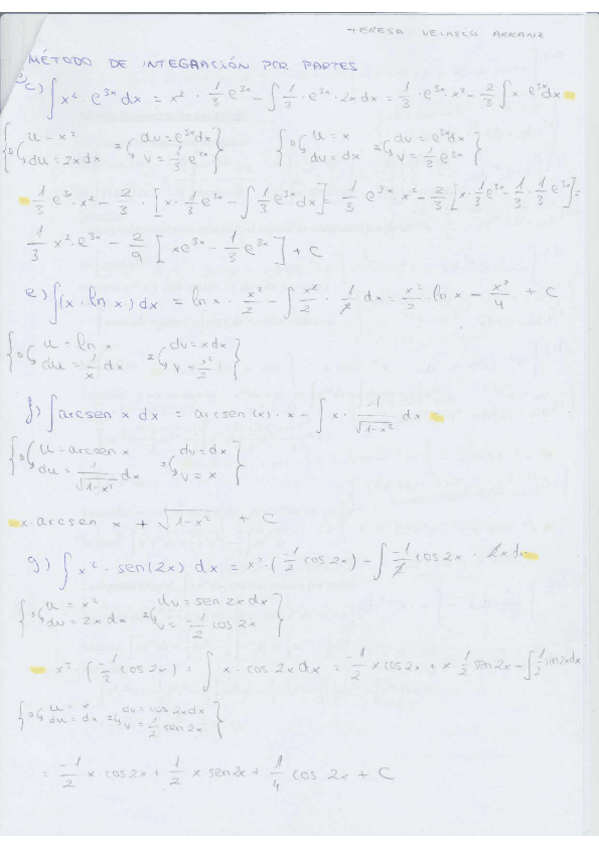 TERESA VELASCO ARRANZ
MÉTODO DE INTEGRACIÓN POR PARTES
c) ∫ x² · e^{3x} dx = x² · 1/3 e^{3x} - ∫ 1/3 · e^{3x} · 2x dx = 1/3 · e^{3x} · x² - 2/3 ∫ x · e^{3x} dx
{ u = x² du = 2x dx dv = e^{3x} dx v = 1/3 e^{3x} } { u = x du = dx dv = e^{3x} dx v = 1/3 e^{3x} }
1/3 e^{3x} · x² - 2/3 · [x · 1/3 e^{3x} - ∫ 1/3 e^{3x} dx] = 1/3 e^{3x} · x² - 2/3 [x · 1/3 e^{3x} - 1/3 · 1/3 e^{3x}] =
1/3 x² · e^{3x} - 2/9 [x e^{3x} - 1/3 e^{3x}] + C
e) ∫ (x · ln x) dx = ln x · x²/2 - ∫ x²/2 · 1/x dx = x²/2 · ln x - x²/4 + C
{ u = ln x du = 1/x dx dv = x dx v = x²/2 }
f) ∫ arcsen x dx = arcsen (x) · x - ∫ x · 1/√(1-x²) dx =
{ u = arcsen x du = 1/√(1-x²) dx dv = dx v = x }
x · arcsen x + √(1-x²) + C
g) ∫ x² · sen(2x) dx = x² · (-1/2 cos 2x) - ∫ -1/2 cos 2x · 2x dx
{ u = x² du = 2x dx dv = sen 2x dx v = -1/2 cos 2x }
x² · (-1/2 cos 2x) + ∫ x · cos 2x dx = -1/2 x cos 2x + x · 1/2 sen 2x - ∫ 1/2 sin 2x dx
{ u = x du = dx dv = cos 2x dx v = 1/2 sen 2x }
= -1/2 x cos 2x + 1/2 x sen 2x + 1/4 cos 2x + C